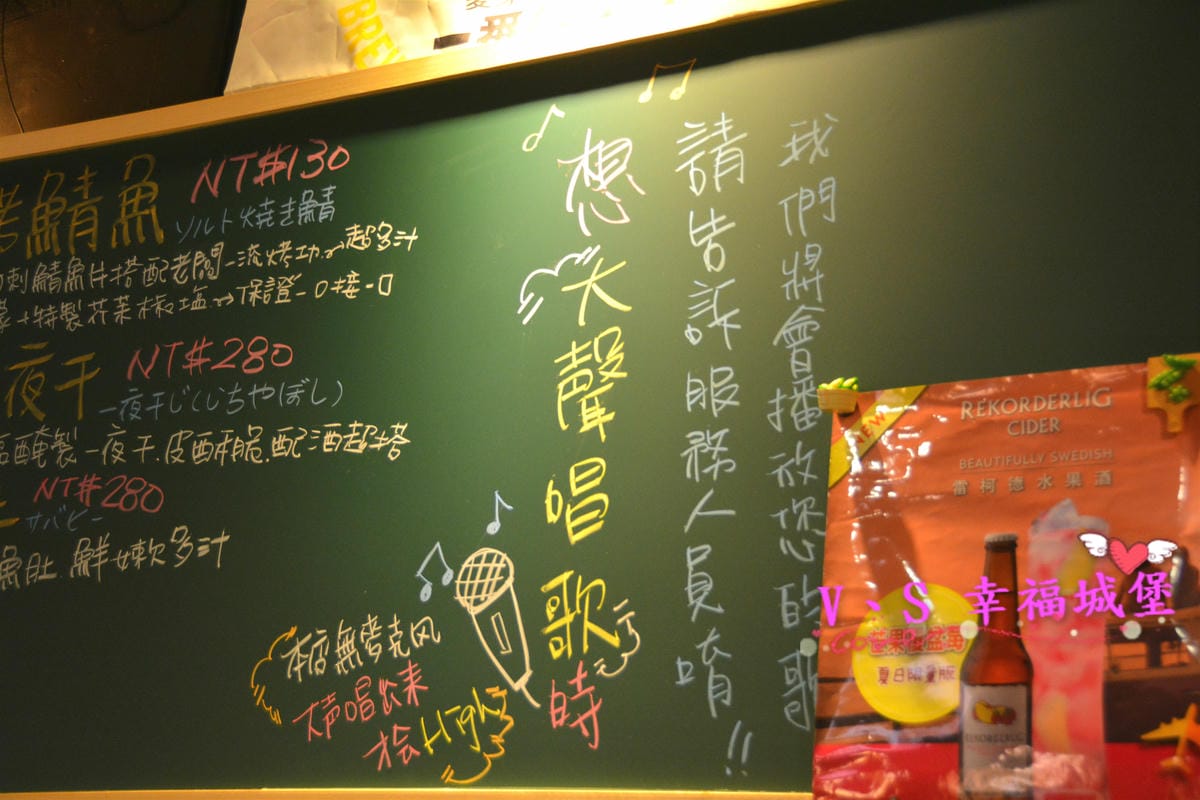 烤鯖魚 NT$130
ソルト焼き鯖
刺鯖魚片搭配老闆一流烤功→超多汁
+特製芥茉椒塩→保證一口接一口
一夜干 NT$280
一夜干じ(いちやぼし)
醃製一夜干.皮酥脆.配酒超搭
NT$280
サバヒー
魚肚.鮮嫩多汁
想大聲唱歌時
請告訴服務人員唷!!
我們將會播放您的歌
本店無麥克风
大声唱出来
才会High
NEW
REKORDERLIG
CIDER
BEAUTIFULLY SWEDISH
雷柯德水果酒
芒果覆盆莓
夏日限量版
REKORDERLIG
V、S 幸福城堡